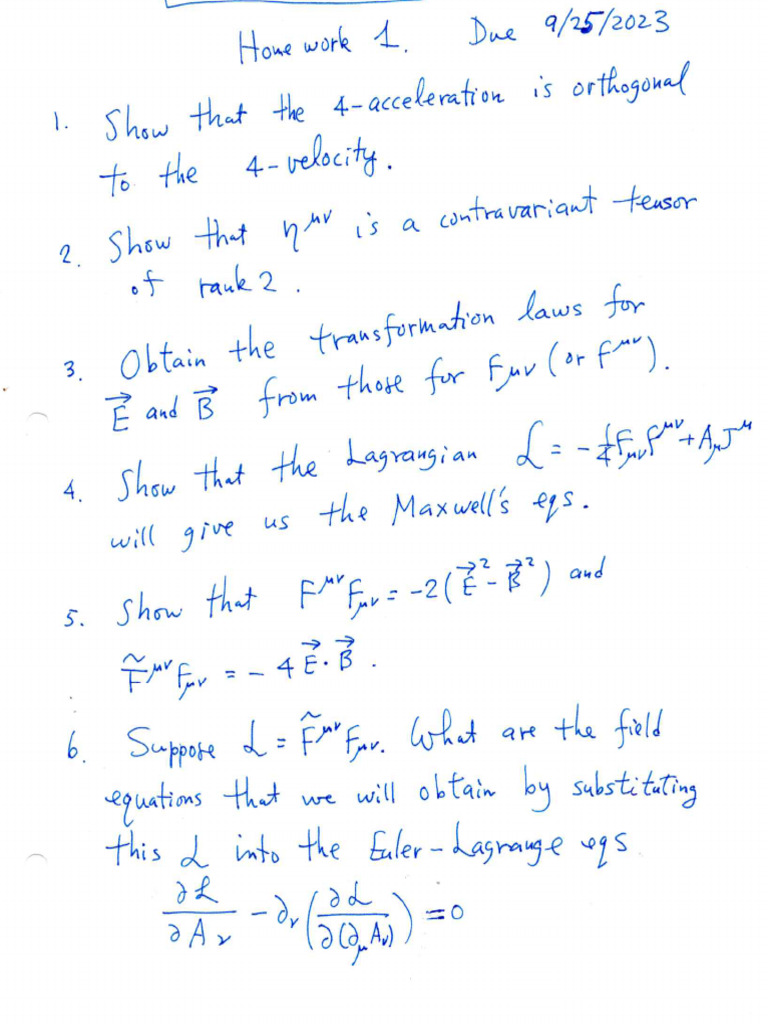 Home work 1. Due 9/25/2023
1. Show that the 4-acceleration is orthogonal
to the 4-velocity.
2. Show that η^{μν} is a contravariant tensor
of rank 2.
3. Obtain the transformation laws for
\vec{E} and \vec{B} from those for F_{μν} (or F^{μν}).
4. Show that the Lagrangian ℒ = -¼F_{μν}F^{μν} + A_μJ^μ
will give us the Maxwell's eqs.
5. Show that F^{μν}F_{μν} = -2(\vec{E}² - \vec{B}²) and
\tilde{F}^{μν}F_{μν} = -4\vec{E}·\vec{B}.
6. Suppose ℒ = \tilde{F}^{μν}F_{μν}. What are the field
equations that we will obtain by substituting
this ℒ into the Euler-Lagrange eqs
∂ℒ/∂A_ν - ∂_ν(∂ℒ/∂(∂_μA_ν)) = 0